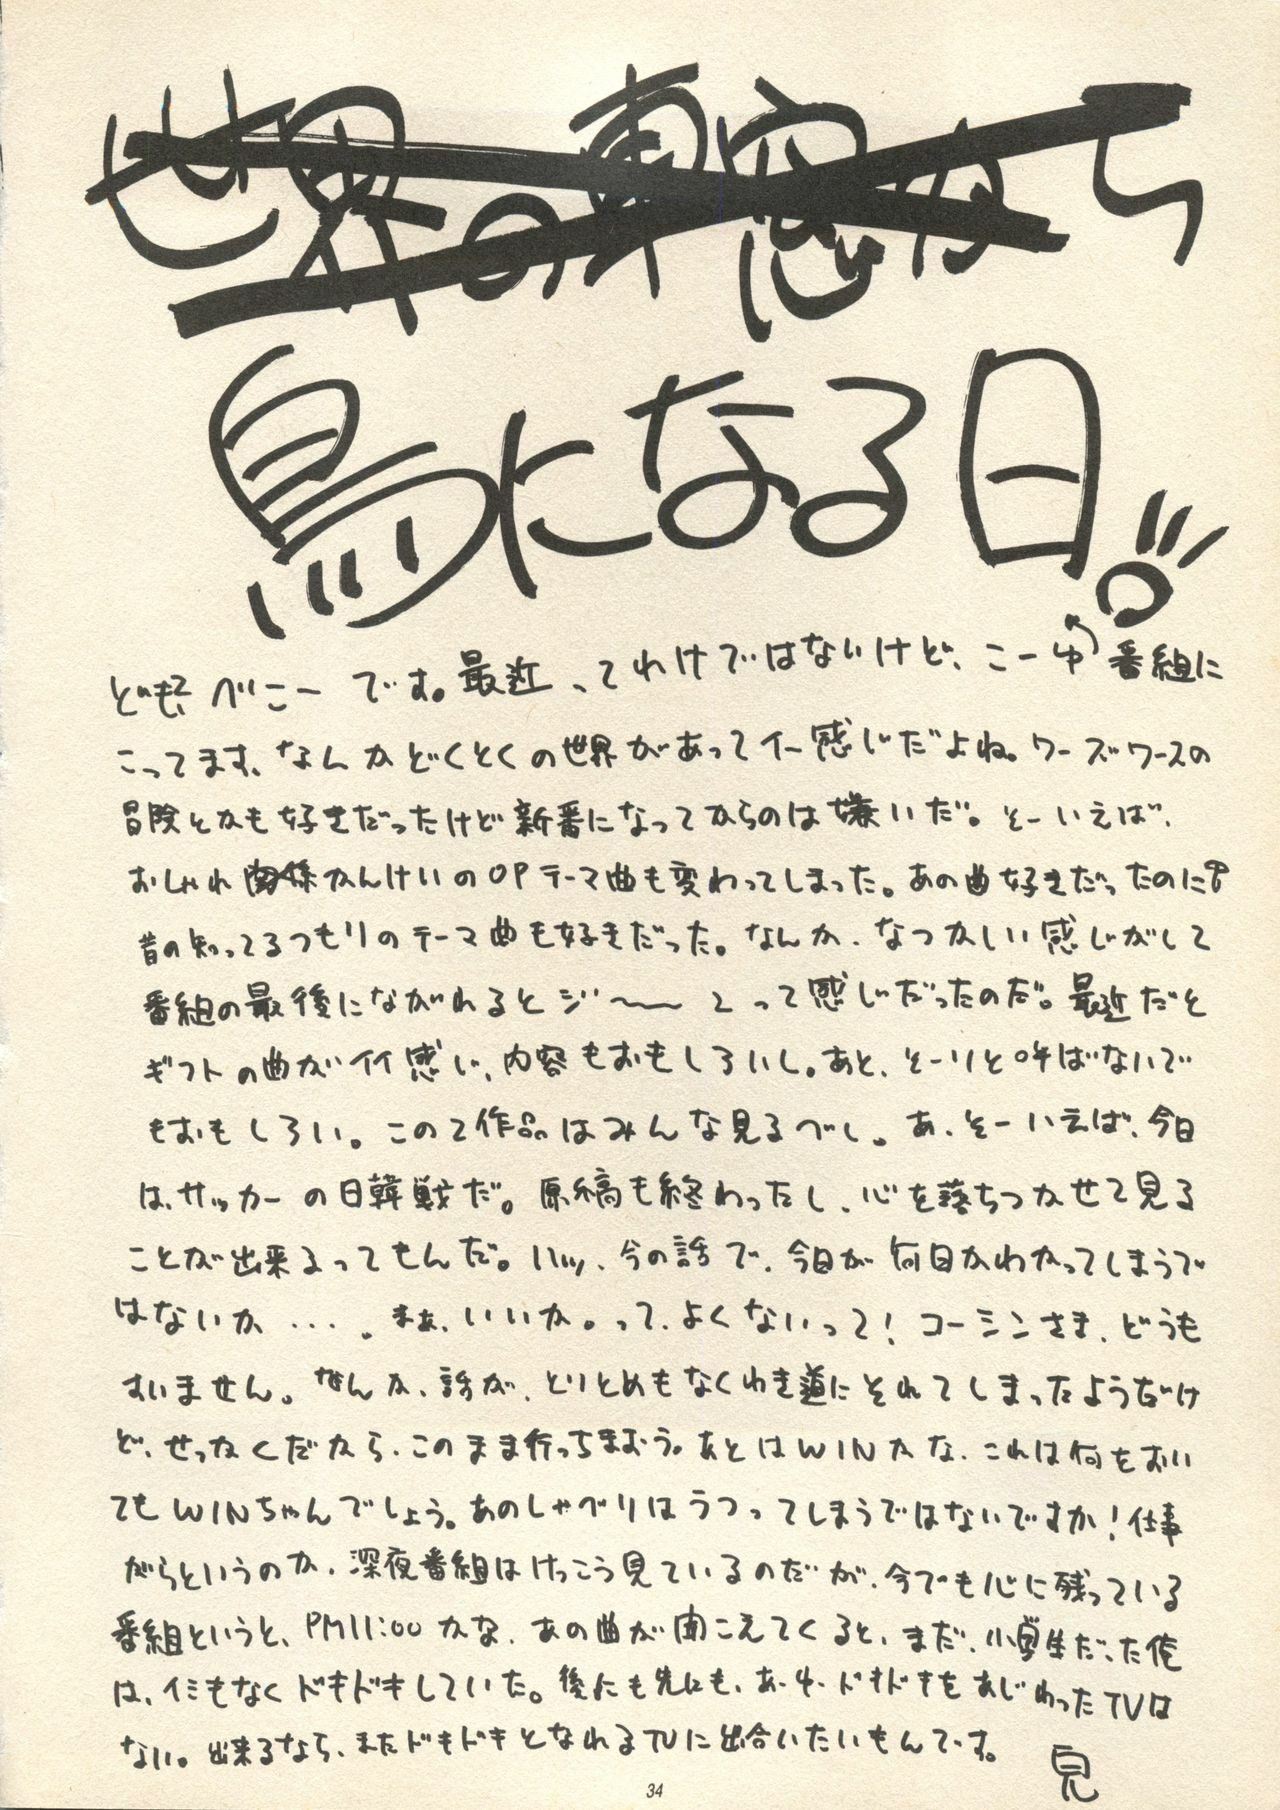 世界の車窓から
鳥になる日!!
ども、べにーです。最近ってわけではないけど、こーゆ番組に
こってます、なんかどくとくの世界があってイー感じだよね。ワーズワースの
冒険とかも好きだったけど新番になってからのは嫌いだ。そーいえば、
おしゃれかんけいのOPテーマ曲も変わってしまった。あの曲好きだったのに
昔の知ってるつもりのテーマ曲も好きだった。なんか、なつかしい感じがして
番組の最後にながれるとジ〜〜ンって感じだったのだ。最近だと
ギフトの曲がイイ感じ、内容もおもしろいし。あと、そーりと呼ばないで
もおもしろい。この2作品はみんな見るべし。あ、そーいえば、今日
は、サッカーの日韓戦だ。原稿も終わったし、心を落ちつかせて見る
ことが出来るってもんだ。ハッ、今の話で、今日が何日かわかってしまうで
はないか…。まぁ、いいか。って、よくないって!コーシンさま、どうも
すいません。なんか、話が、とりとめもなくわき道にそれてしまったようだけ
ど、せっかくだから、このまま行っちまおう。あとはWINかな、これは何をおい
てもWINちゃんでしょう。あのしゃべりはうつってしまうではないですか!仕事
がらというのか、深夜番組はけっこう見ているのだが、今でも心に残っている
番組というと、PM11:00かな、あの曲が聞こえてくると、まだ、小学生だった俺
は、イミもなくドキドキしていた。後にも先にも、あーゆードキドキをあじわったTVは
ない。出来るなら、またドキドキとなれるTVに出合いたいもんです。
34